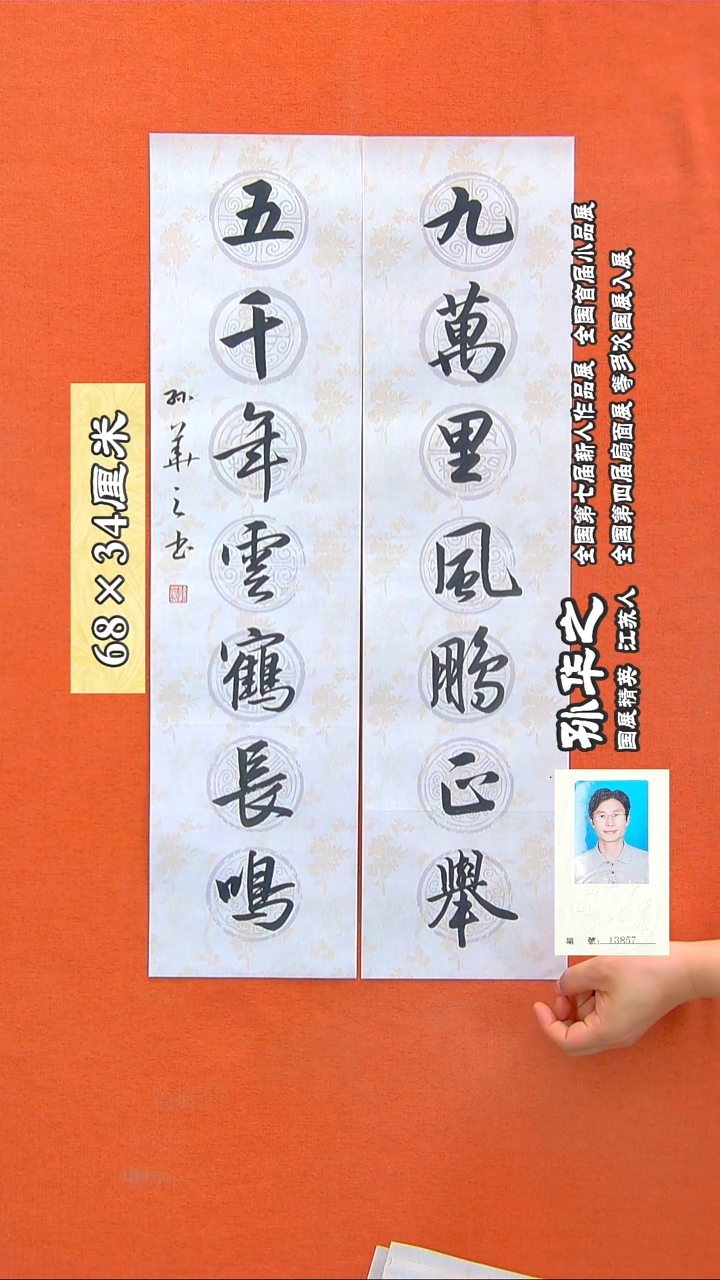 九萬里風鵬正舉
五千年雲鶴長鳴
孙華之书
68×34厘米
孙华之
国展精英 江苏人
全国第七届新人作品展 全国首届小品展
全国第四届扇面展 等多次国展入展
編 號: 13857